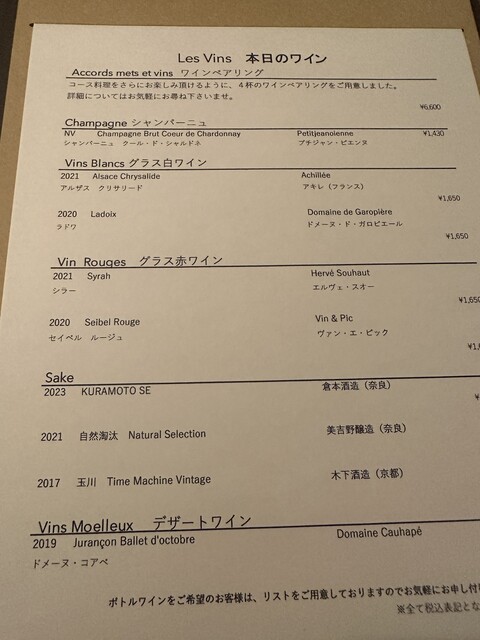 Les Vins 本日のワイン
Accords mets et vins ワインペアリング
コース料理をさらにお楽しみ頂けるように、4杯のワインペアリングをご用意しました。
詳細についてはお気軽にお尋ね下さいませ。
¥6,600
Champagne シャンパーニュ
NV Champagne Brut Coeur de Chardonnay Petitjeanoienne ¥1,430
シャンパーニュ クール・ド・シャルドネ プチジャン・ピエンヌ
Vins Blancs グラス白ワイン
2021 Alsace Chrysalide Achillée
アルザス クリサリード アキレ（フランス）
¥1,650
2020 Ladoix Domaine de Garopière
ラドワ ドメーヌ・ド・ガロピエール
¥1,650
Vin Rouges グラス赤ワイン
2021 Syrah Hervé Souhaut
シラー エルヴェ・スオー
¥1,650
2020 Seibel Rouge Vin & Pic
セイベル ルージュ ヴァン・エ・ピック
Sake
2023 KURAMOTO SE 倉本酒造（奈良）
2021 自然淘汰 Natural Selection 美吉野醸造（奈良）
2017 玉川 Time Machine Vintage 木下酒造（京都）
Vins Moelleux デザートワイン
2019 Jurançon Ballet d'octobre Domaine Cauhapé
ドメーヌ・コアペ
ボトルワインをご希望のお客様は、リストをご用意しておりますのでお気軽にお申し付け
※全て税込表記とな